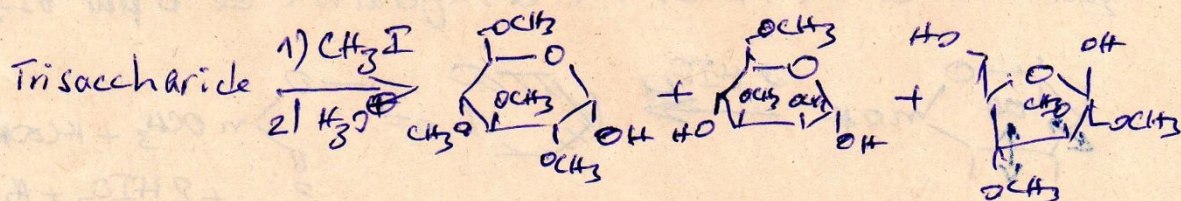 Trisaccharide 1) CH3I 2) H3O⊕
OCH3 O OCH3 CH3O OCH3 OH
+
OCH3 O OCH3 OCH3 HO OH
+
HO OH O CH3O OCH3 OCH3